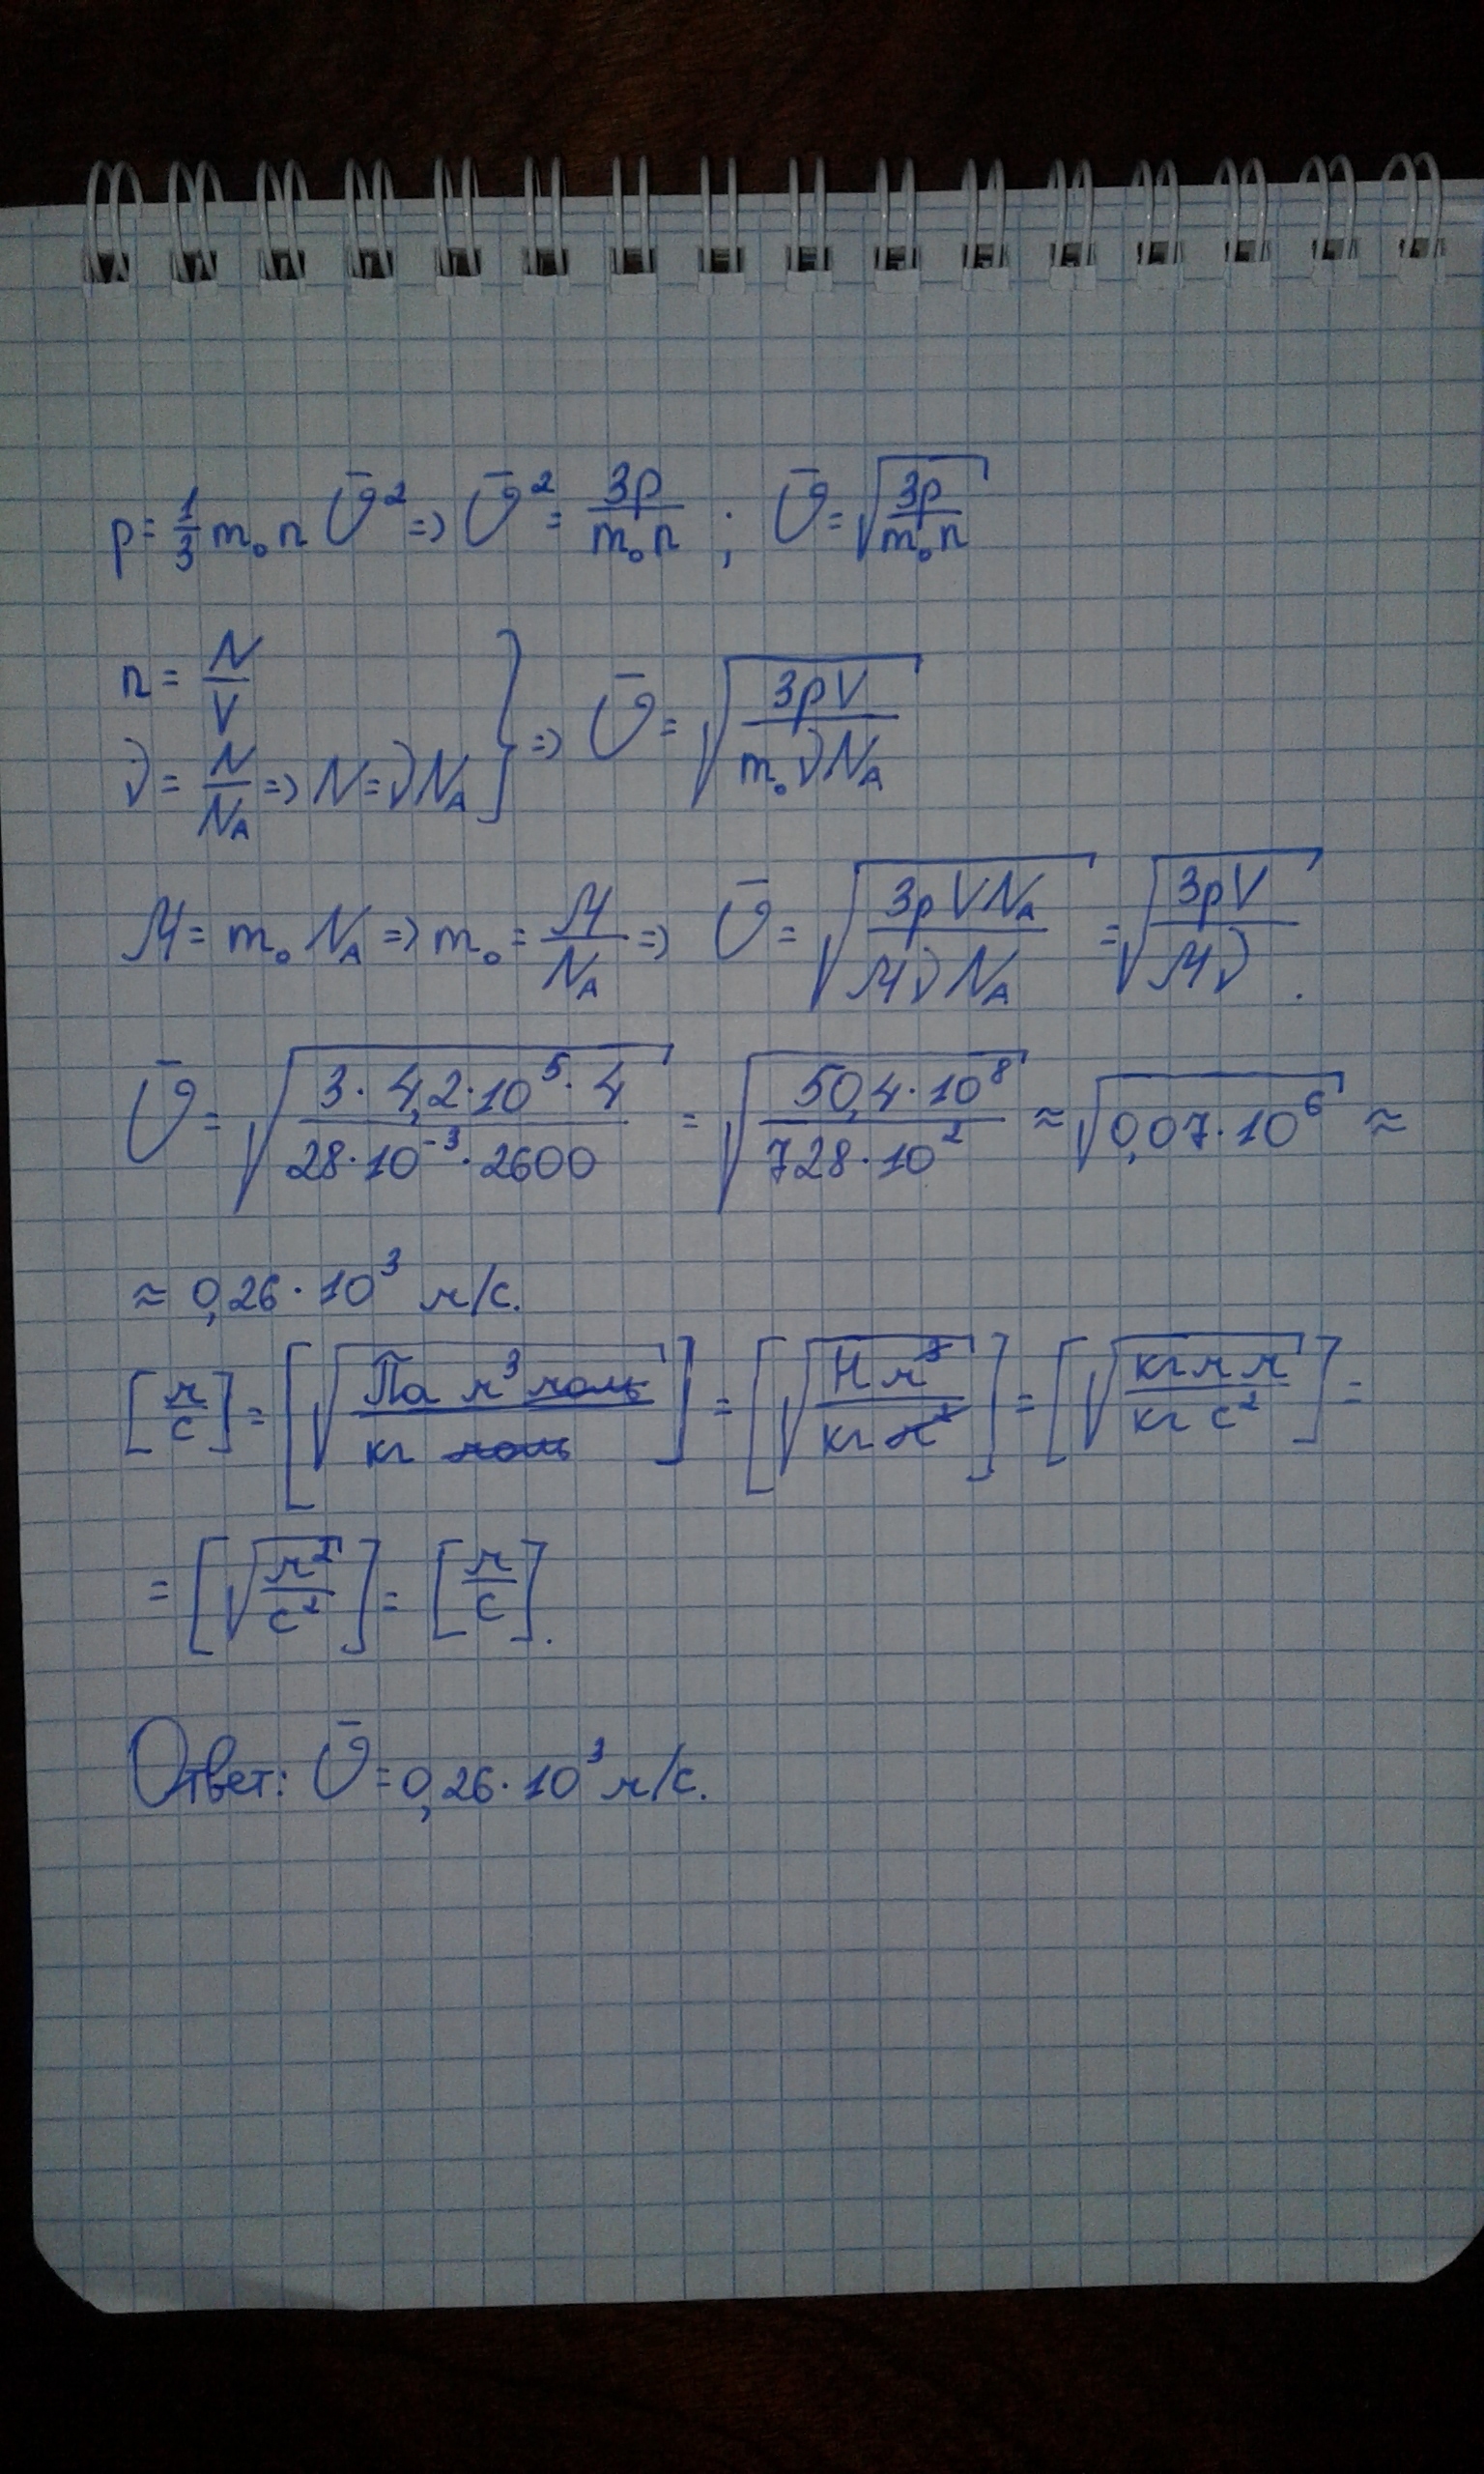 p = 1/3 m₀ n ῡ² => ῡ² = 3p / m₀n ; ῡ = √(3p / m₀n)
n = N / V
ν = N / N_A => N = νN_A } => ῡ = √(3pV / m₀νN_A)
M = m₀ N_A => m₀ = M / N_A => ῡ = √(3pVN_A / MνN_A) = √(3pV / Mν) .
ῡ = √(3·4,2·10⁵·4 / 28·10⁻³·2600) = √(50,4·10⁸ / 728·10²) ≈ √(0,07·10⁶) ≈
≈ 0,26·10³ м/с.
[м/с] = [√(Па м³ моль / кг моль)] = [√(Н м³ / кг м²)] = [√(кг м м / кг с²)] =
= [√(м² / с²)] = [м/с].
Ответ: ῡ = 0,26·10³ м/с.